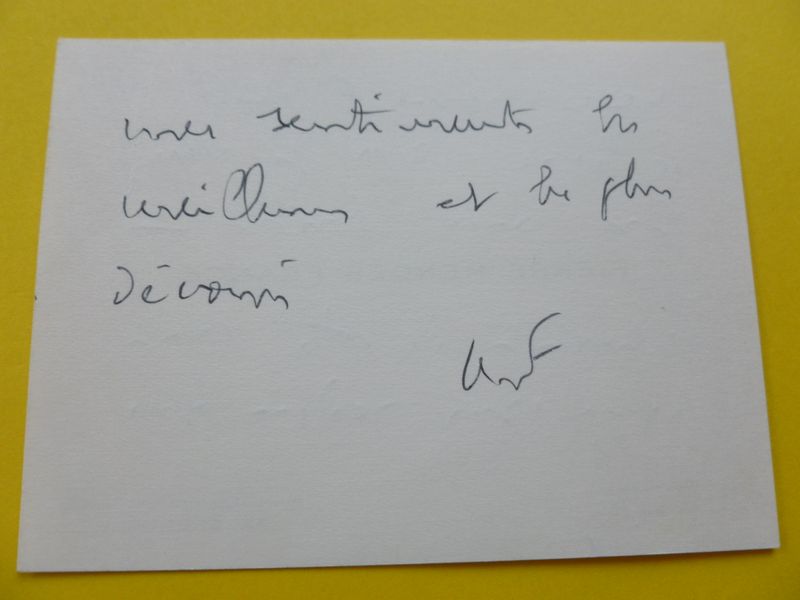 mes sentiments les
meilleurs et les plus
dévoués